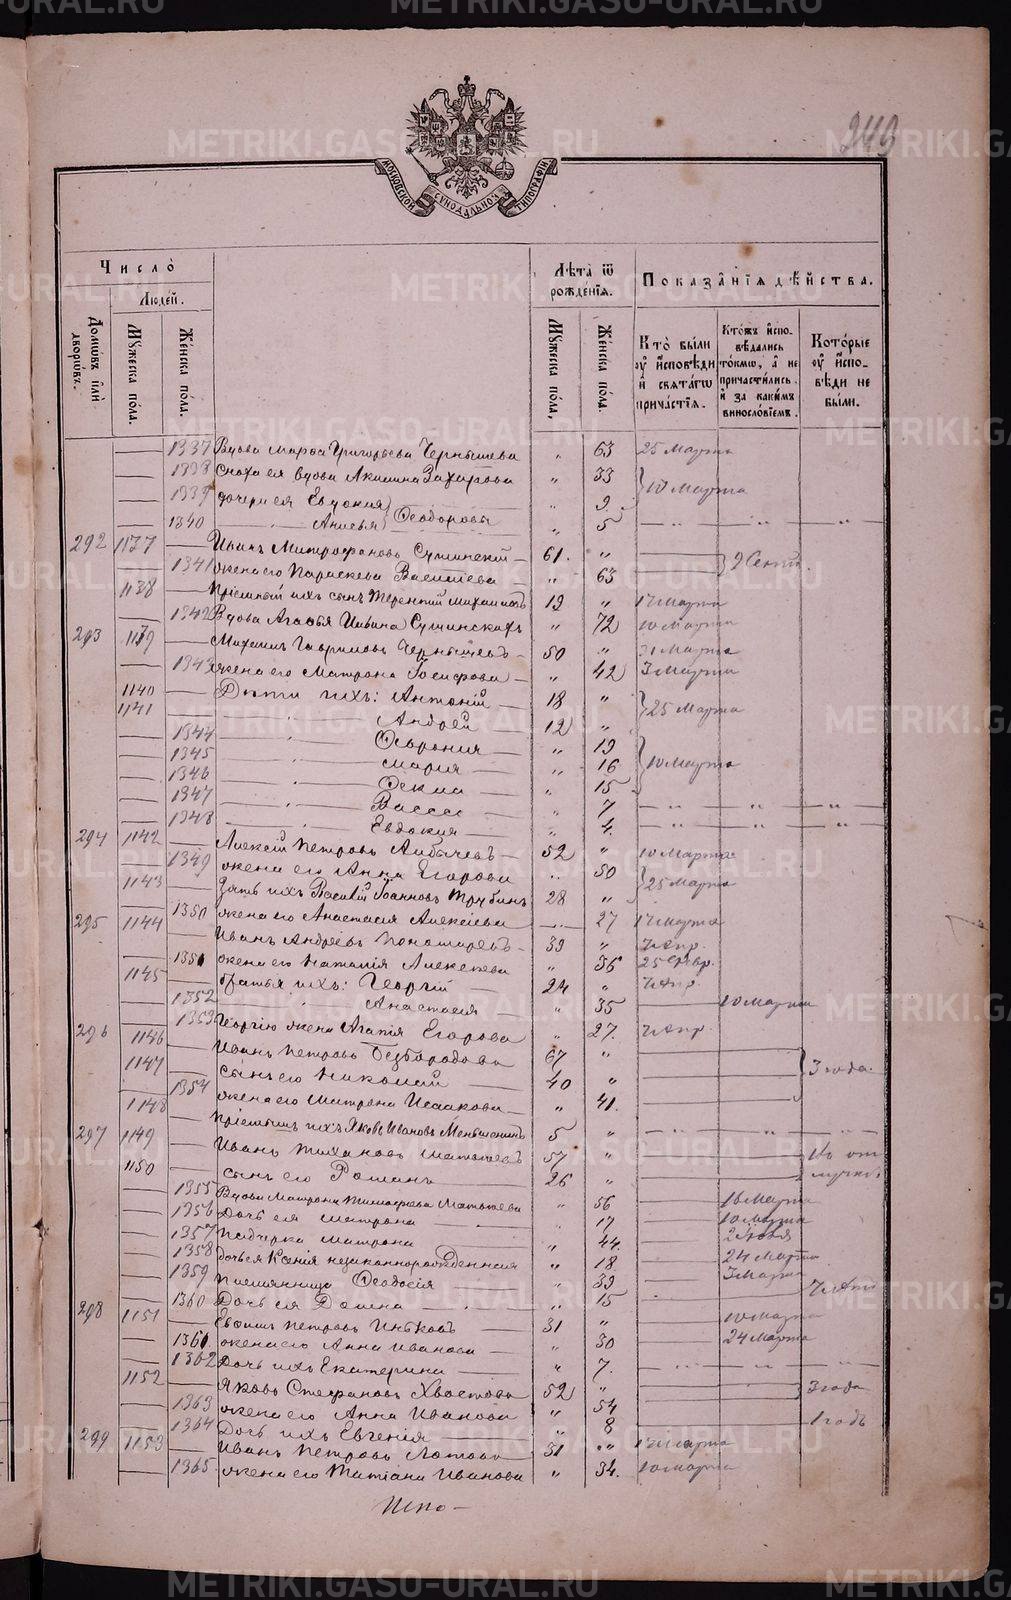 249
МОСКОВСКОЙ СѴНОДАЛЬНОЙ ТИПОГРАФІИ
Число̀
Людей.
Домѡвъ и҆лѝ дворѡвъ.
Мꙋ́жеска по́ла.
Же́нска по́ла.
Лѣ́та ѿ рожде́нїѧ.
Мꙋ́жеска по́ла,
Же́нска по́ла.
Показа̂нїѧ дѣ́йства.
Кто̀ бы́ли ᲂу҆ и҆́сповѣди и҆ свѧта́гѡ прича́стїѧ.
Кто́жъ и҆спо- вѣ́дались то́кмѡ, а҆ не причасти́лись. и҆ за каки́мъ виносло́вїемъ.
Кото́рые ᲂу҆ и҆́спо- вѣди не бы́ли.
1337 Вдова Марѳа Григорьева Чернышева „ 63 25 Марта
1338 Сноха ея вдова Акилина Захарова „ 33 } 10 Марта
1339 дочери ея Евдокия „ 9.
1340 „ Анисья } Ѳеодоровы „ 5 — „ — „ — „
292 1137 Иванъ Митрофановъ Сушинскій 61. „ } 9 Сент.
1341 жена его Параскева Василиева „ 63
1138 Пріемный ихъ сынъ Терентий 19 „ 17 Марта
1342 Вдова Агаѳья Ивана Сушинскихъ „ 72 10 Марта
293 1139 Михаилъ Гавриловъ Чернышевъ 50 „ 31 Марта
1343 жена его Матрона Іосифова „ 42 3 Марта
1140 Дѣти ихъ: Антоній 18 „ } 25 Марта
1141 „ Андрей 12 „
1344 „ Ѳеврония „ 19 } 10 Марта
1345 „ Мария „ 16
1346 „ Ѳекла „ 15
1347 „ Васса „ 7 — „ — „ — „
1348 „ Евдокия „ 4. — „ — „ — „
294 1142 Алексій Петровъ 52 „ 10 Марта
1349 жена его Анна Егорова „ 50 } 25 Марта
1143 Зять ихъ Василій Іоанновъ Трубинъ 28 „
1350 жена его Анастасия Алексіева „ 27 17 Марта
295 1144 Иванъ Андреевъ Пономаревъ 39 „ 7 Апр.
1351 жена его Наталія Алексеева „ 36 25 Февр.
1145 братья ихъ: Георгій 24 „ 7 Апр.
1352 „ Анастасия „ 35 10 Марта
1353 Георгію жена Агапія Егорова „ 27. 7 Апр.
296 1146 Иванъ Петровъ Безбородовъ 67 „ } 3 года.
1147 сынъ его Николай 40 „
1354 жена его Матрена Исаакова „ 41.
1148 Пріемышъ ихъ Яковъ Ивановъ Меньшенинъ 5 „ — „ — „ — „
297 1149 Иванъ Тихановъ 57 „ Въ от
1150 сынъ его Романъ 26 „ лучкѣ
1355 Вдова Матрона Тимофеева „ 56 16 Марта
1356 Дочь ея Матрона „ 17 10 Марта
1357 Падчерка Матрона „ 44. 2 Іюня
1358 дочь ея Ксенія незаконнорожденная „ 18 24 Марта
1359 Племянница Ѳеодосія „ 39 3 Марта
1360 Дочь ея Домна „ 15
298 1151 Евѳимъ Петровъ 31 „ 10 Марта
1361 жена его Анна Иванова „ 30 24 Марта
1362 Дочь ихъ Екатерина „ 7. — „ — „ — „
1152 Яковъ Стефановъ Хвостовъ 52 „ 3 года
1363 жена его Анна Иванова „ 54
1364 Дочь ихъ Евгенія „ 8 1 годъ
299 1153 Иванъ Петровъ 31 „ 17 Марта
1365 жена его Татіана Иванова „ 34. 10 Марта
METRIKI.GASO-URAL.RU